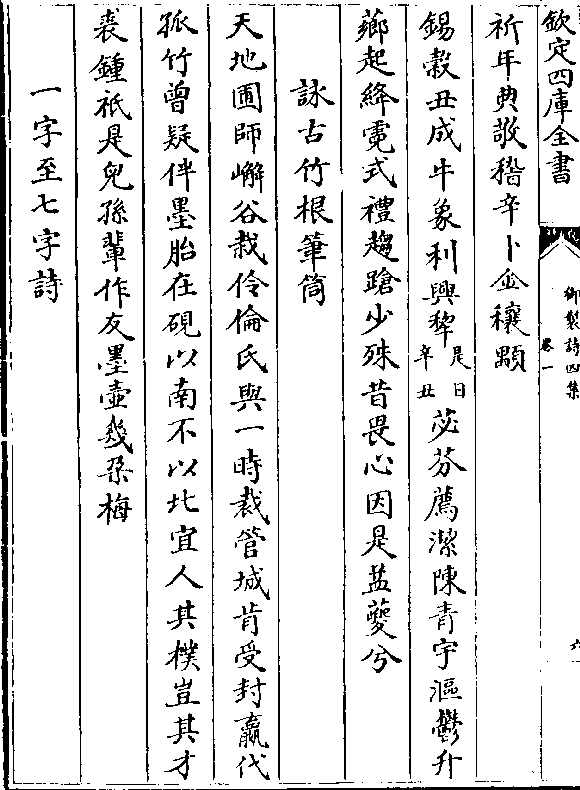 欽定四庫全書
御製詩四集
卷一
六
祈年典敬稽辛卜金穰顯
錫穀丑成牛象利興犂是日辛丑苾芬薦潔陳青宇漚鬱升
薌起絳霓式禮趨蹌少殊昔畏心因是益夔兮
詠古竹根筆筒
天地圃師嶰谷栽伶倫氏與一時裁管城肯受封嬴代
孤竹曾疑伴墨胎在硯以南不以北宜人其樸豈其才
裘鍾祇是兒孫輩作友墨壺幾朶梅
一字至七字詩